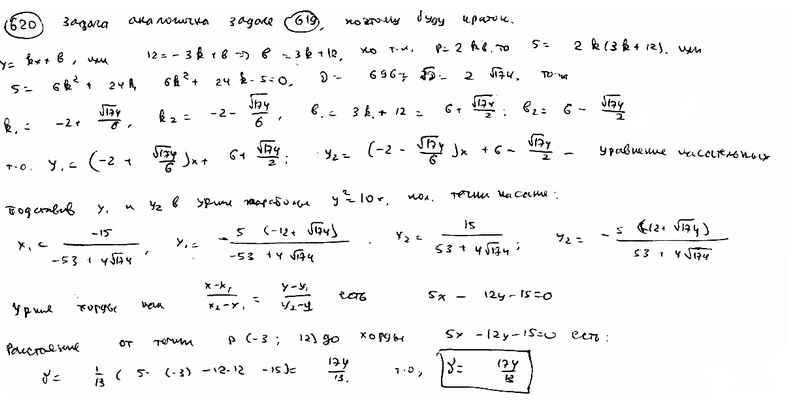 620 Задача аналогична задаче 619, поэтому буду краток.
y = kx + в, или 12 = -3k + в ⇒ в = 3k + 12, но т.к. p = 2kв, то 5 = 2k(3k + 12), или
5 = 6k² + 24k, 6k² + 24k - 5 = 0, D = 696, √D = 2√174, тогда
k₁ = -2 + √174/6, k₂ = -2 - √174/6, в₁ = 3k₁ + 12 = 6 + √174/2; в₂ = 6 - √174/2
т.о. y₁ = (-2 + √174/6)x + 6 + √174/2; y₂ = (-2 - √174/6)x + 6 - √174/2 - уравнение касательных
Подставив y₁ и y₂ в ур-ние параболы y² = 10x, пол. точки касания:
x₁ = -15/(-53 + 4√174), y₁ = -5(-12 + √174)/(-53 + 4√174). x₂ = 15/(53 + 4√174); y₂ = -5(12 + √174)/(53 + 4√174)
Ур-ние хорды (x - x₁)/(x₂ - x₁) = (y - y₁)/(y₂ - y₁) есть 5x - 12y - 15 = 0
Расстояние от точки P(-3; 12) до хорды 5x - 12y - 15 = 0 есть:
γ = 1/13 (5·(-3) - 12·12 - 15) = 174/13. т.о, γ = 174/13